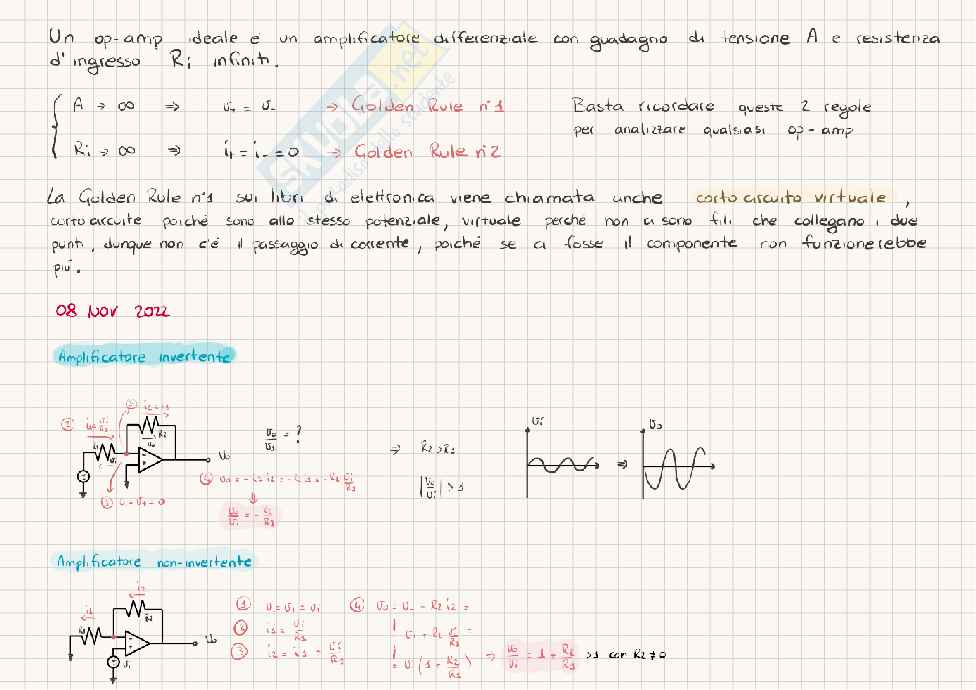 Un op-amp ideale e un amplificatore differenziale con guadagno di tensione A e resistenza
d'ingresso Ri infiniti.
A → ∞ ⇒ v+ = v- → Golden Rule n°1
Ri → ∞ ⇒ i+ = i- = 0 → Golden Rule n°2
Basta ricordare queste 2 regole
per analizzare qualsiasi op-amp
La Golden Rule n°1 sui libri di elettronica viene chiamata anche corto circuito virtuale,
corto circuite poiché sono allo stesso potenziale, virtuale perche non ci sono fili che collegano i due
punti, dunque non c'é il passaggio di corrente, poiché se ci fosse il componente non funzionerebbe
piú.
08 NOV 2022
Amplificatore invertente
vo/vi = ?
⇒ R2>R1
|vo/vi| > 1
vi
⇒
vo
vo/vi = - R2/R1
Amplificatore non-invertente
① v- = v+ = vi
② i1 = vi/R1
③ i2 = i1 = vi/R1
④ vo = v- + R2 i2 =
= vi + R2 vi/R1 =
= vi (1 + R2/R1)
⇒ vo/vi = 1 + R2/R1 >1 con R2≠0
SKUOLA.net